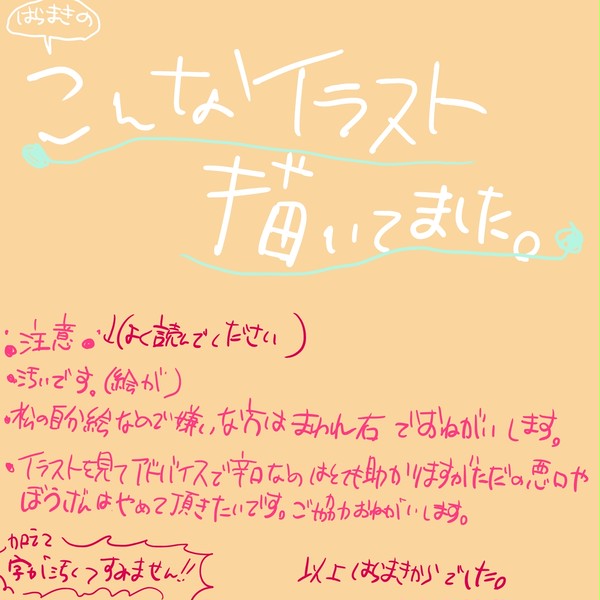 はらまきの
こんなイラスト
描いてました。
・注意・↓(よく読んでください)
・汚いです。(絵が)
・松の自分絵なので嫌いな方はまわれ右でおねがいします。
・イラストを見てアドバイスで辛口なのはとても助かりますがただの悪口や
ぼうげんはやめて頂きたいです。ご協力おねがいします。
加えて
字が汚くてすみません!!
以上はらまきからでした。